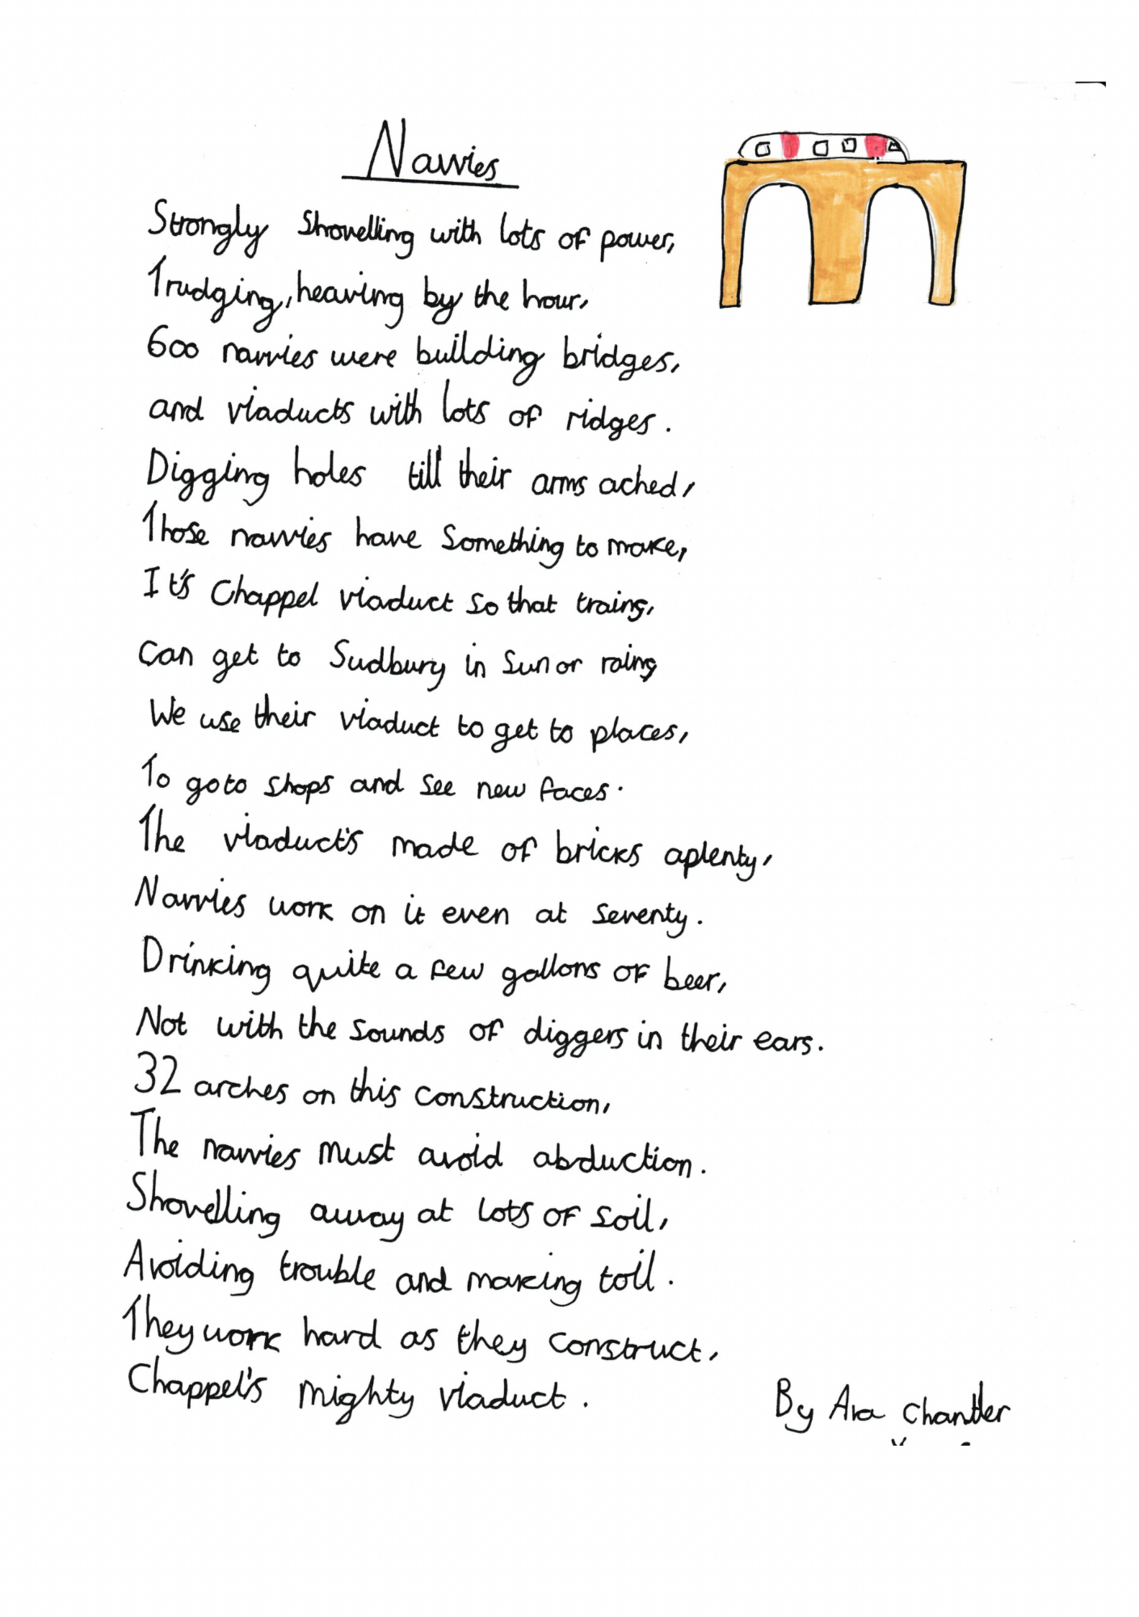 Navvies
Strongly Shovelling with lots of power,
Trudging, heaving by the hour,
600 navvies were building bridges,
and viaducts with lots of ridges.
Digging holes till their arms ached,
Those navvies have Something to make,
It's Chappel viaduct so that trains,
Can get to Sudbury in Sun or rains
We use their viaduct to get to places,
To go to shops and see new faces.
The viaduct's made of bricks aplenty,
Navvies work on it even at seventy.
Drinking quite a few gallons of beer,
Not with the sounds of diggers in their ears.
32 arches on this construction,
The navvies must avoid abduction.
Shovelling away at lots of soil,
Avoiding trouble and making toil.
They work hard as they construct,
Chappel's mighty viaduct.
By Ava Chandler